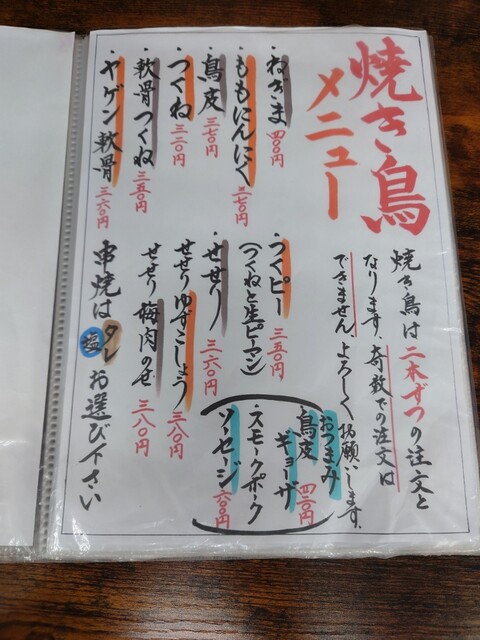 焼き鳥
メニュー
焼き鳥は二本ずつの注文と
なります。奇数での注文は
できません。よろしくお願いします。
・ねぎま 四〇〇円
・ももにんにく 三七〇円
・鳥皮 三七〇円
・つくね 三二〇円
・軟骨つくね 三五〇円
・ヤゲン軟骨 三六〇円
・つくピー 三五〇円
(つくねと生ピーマン)
・せせり 三六〇円
せせりゆずこしょう 三八〇円
せせり梅肉のせ 三八〇円
おつまみ
鳥皮ギョーザ 四二〇円
・スモークポークソセージ 六〇〇円
串焼はタレ
塩
お選び下さい